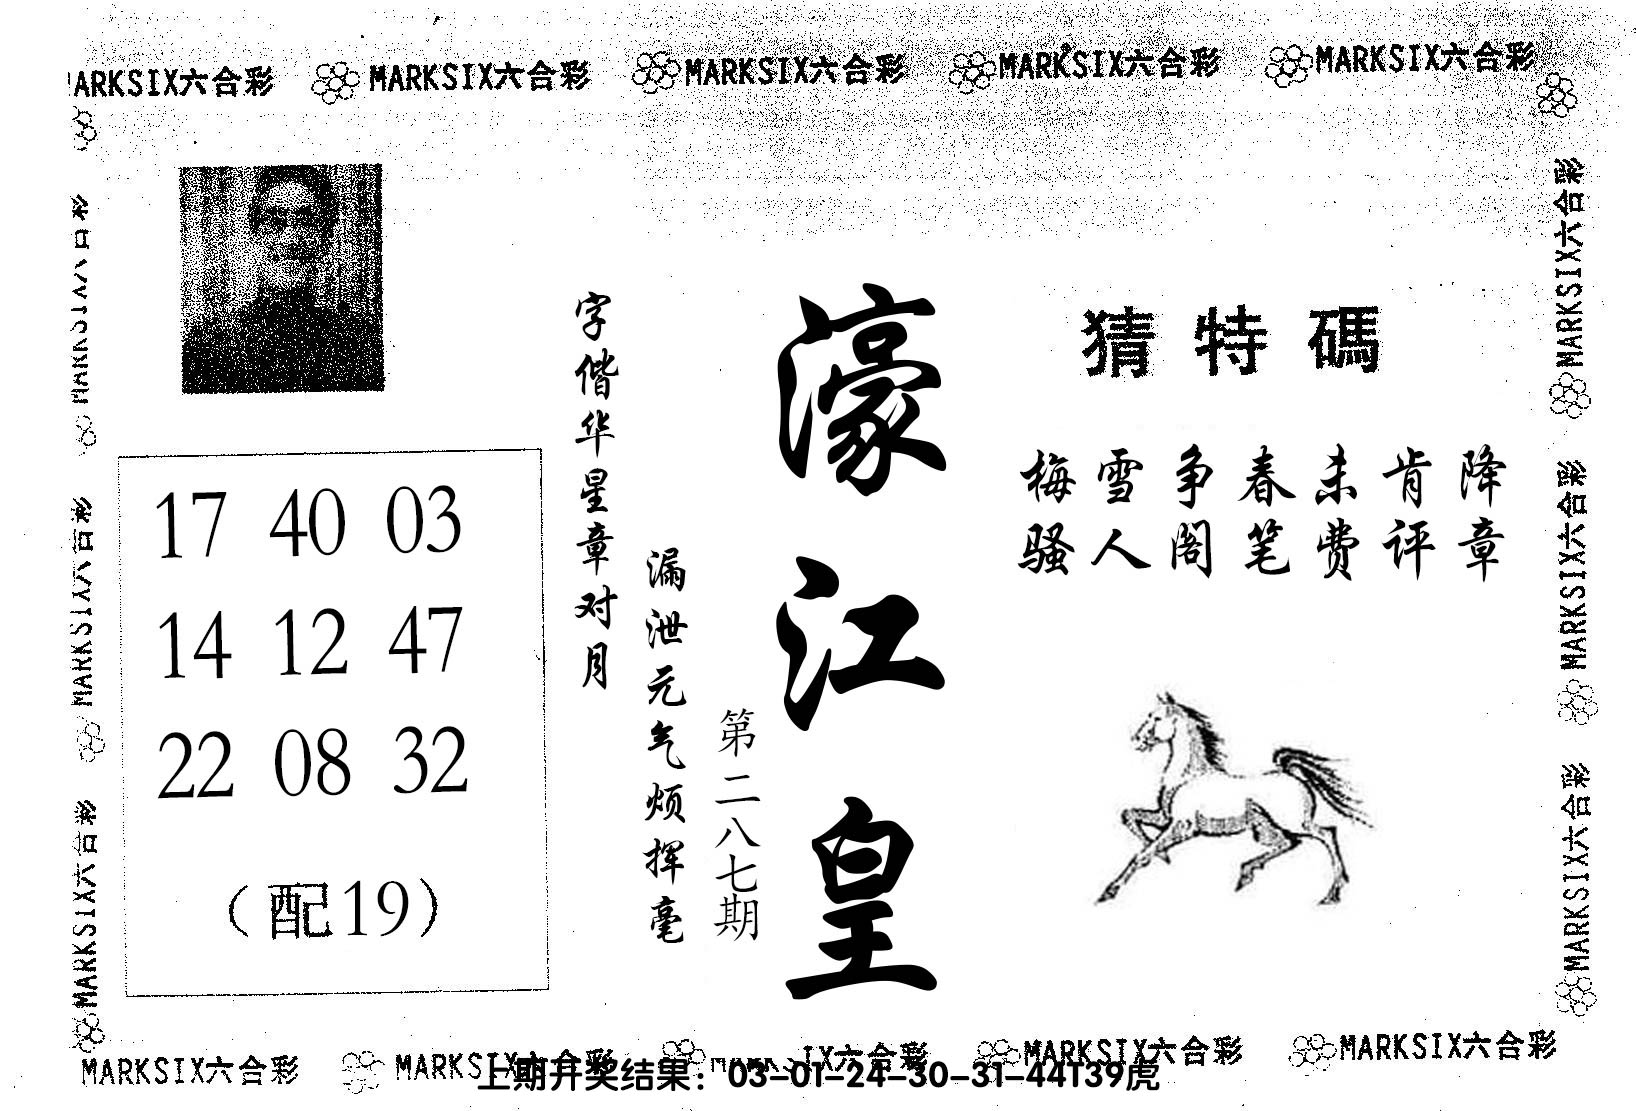 MARKSIX六合彩 MARKSIX六合彩 MARKSIX六合彩 MARKSIX六合彩 MARKSIX六合彩
猜特碼
梅雪争春未肯降
骚人阁笔费评章
濠江皇
第二八七期
字偕华星章对月
漏泄元气烦挥毫
17 40 03
14 12 47
22 08 32
（配19）
MARKSIX六合彩
MARKSIX六合彩
MARKSIX六合彩
MARKSIX六合彩
MARKSIX六合彩
MARKSIX六合彩
MARKSIX六合彩 MARKSIX六合彩 MARKSIX六合彩 MARKSIX六合彩 MARKSIX六合彩
上期开奖结果：03-01-24-30-31-44T39虎